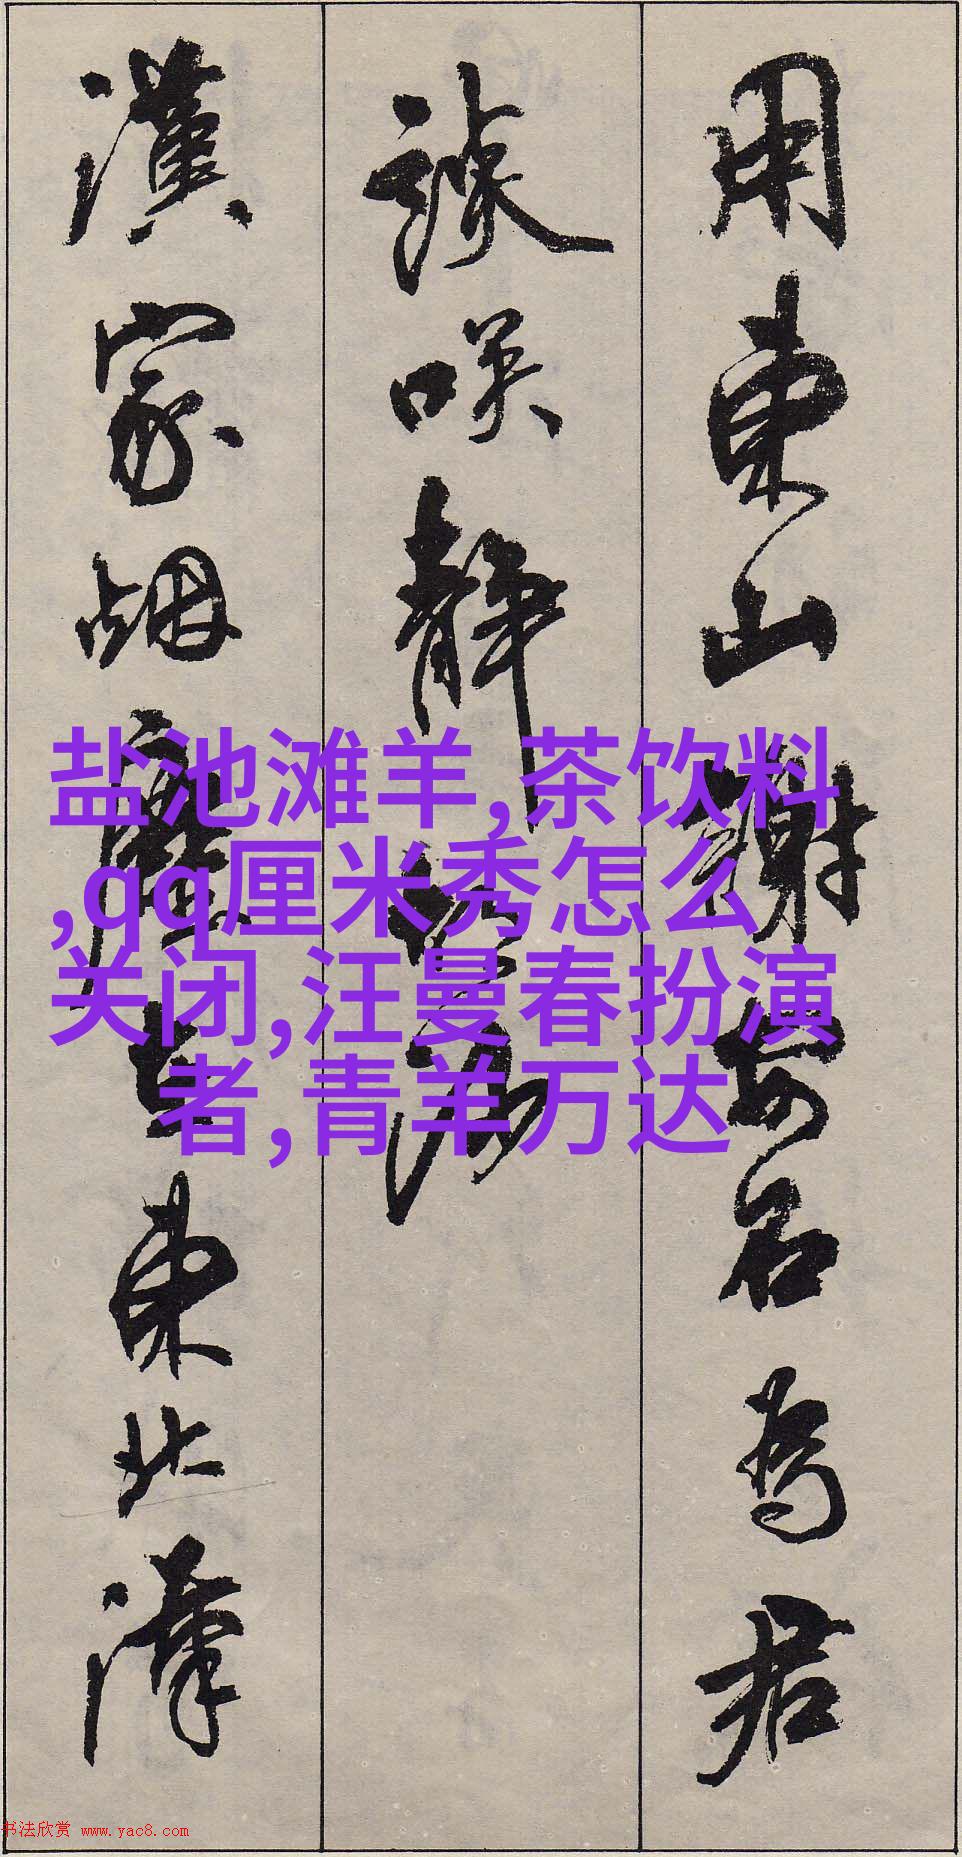 用東山謝安石為君
談咲靜胡沙
漢家烟塵在東北漢
盐池滩羊,茶饮料
,qq厘米秀怎么
关闭,汪曼春扮演
者,青羊万达
书法欣赏 www.yac8.com